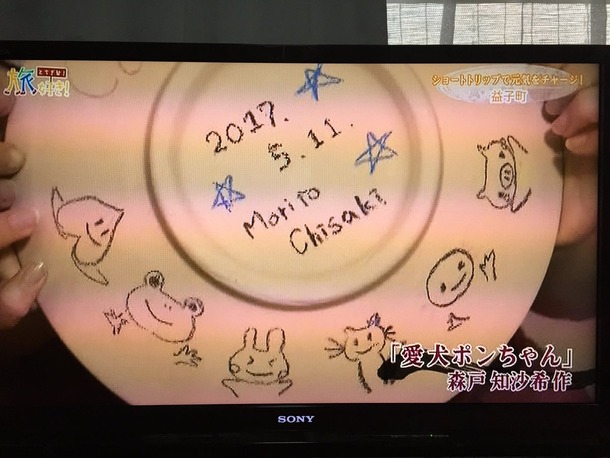 とちぎ発!
旅好き!
ショートトリップで元気をチャージ!
益子町
2017.
5.11.
Morito
Chisaki
「愛犬ポンちゃん」
森戸 知沙希 作
SONY